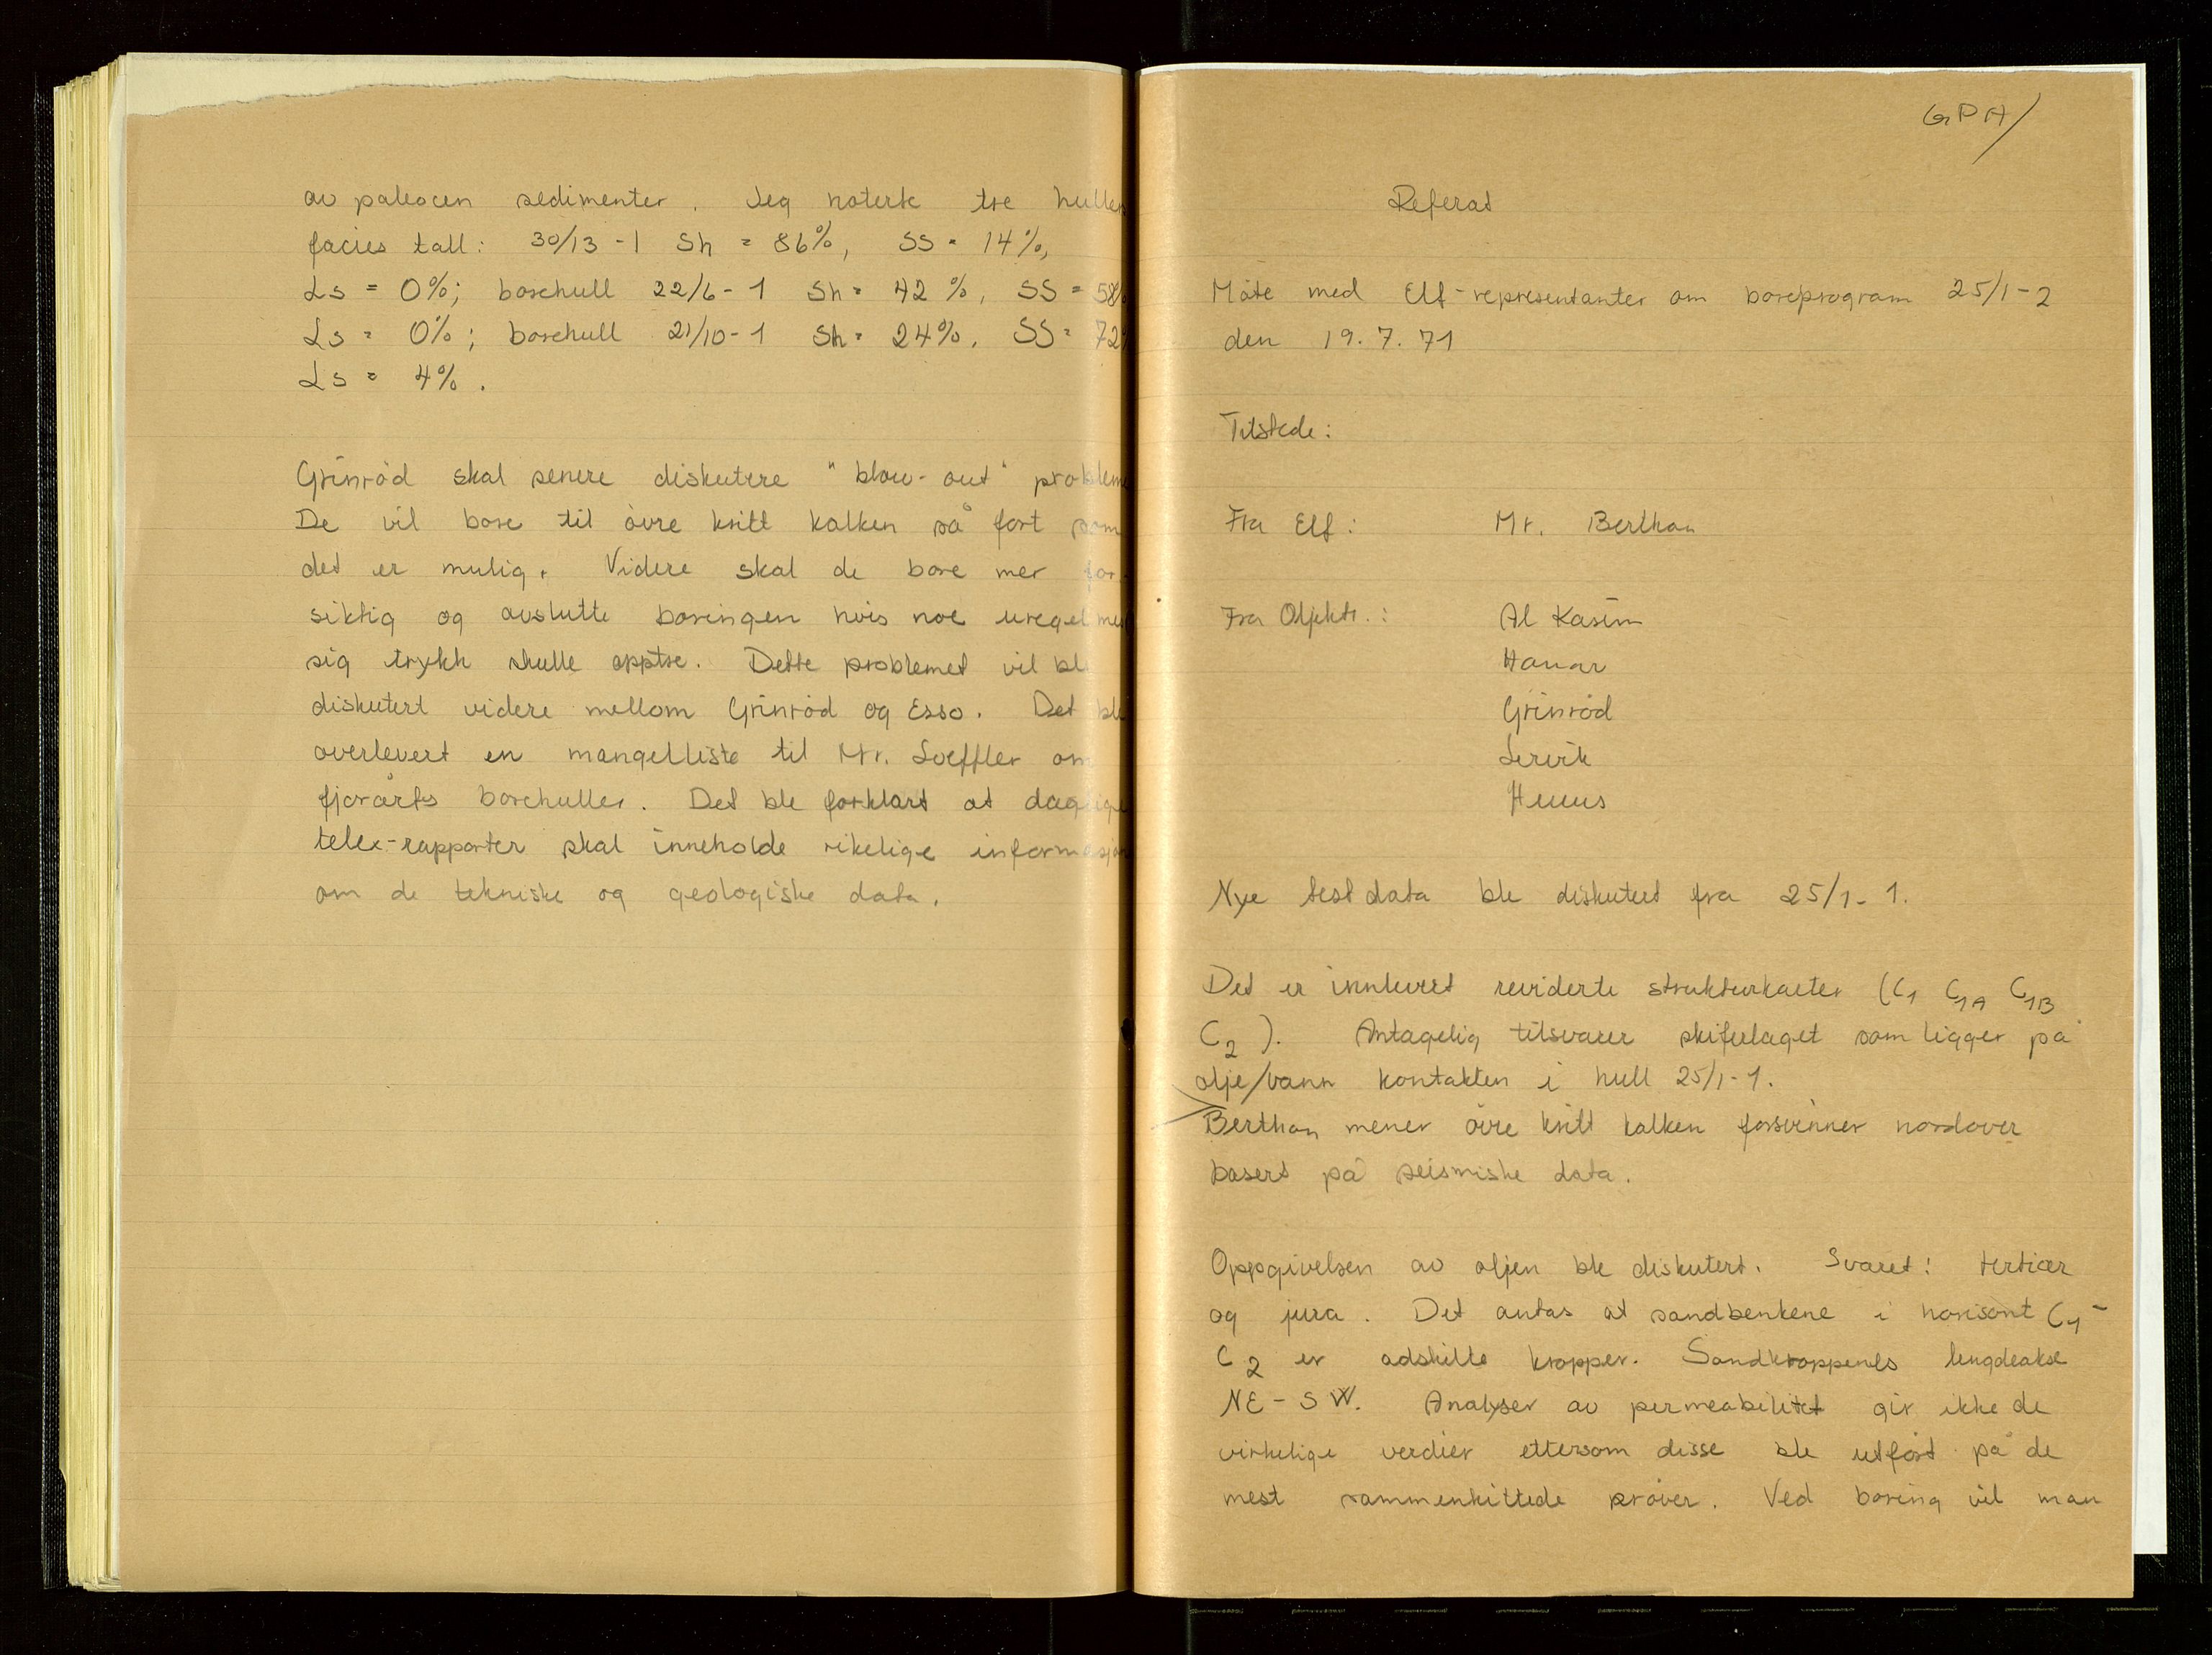 av paleocen sedimenter. Jeg noterte tre hullers
facies tall: 30/13-1 Sh = 86%, SS = 14%,
Ls = 0%; borehull 22/6-1 Sh = 42%, SS = 58%
Ls = 0%; borehull 21/10-1 Sh = 24%, SS = 72%
Ls = 4%.
Grinröd skal senere diskutere "blow-out"
De vil bore til övre kritt kalken så fort som
det er mulig. Videre skal de bore mer for-
siktig og avslutte boringen hvis noe uregelmes
sig trykk skulle opptre. Dette problemet vil bli
diskutert videre mellom Grinröd og Esso. Det ble
overlevert en mangelliste til Mr. Loeffler om
fjorårts borehuller. Det ble forklart at daglige
telex-rapporter skal inneholde rikelige informasjon
om de tekniske og geologiske data.
GPA/
Referat
Möte med Elf-representanter om boreprogram 25/1-2
den 19.7.71
Tilstede:
Fra Elf: Mr. Berthon
Fra Oljektr.: Al Kasim
Hanar
Grinröd
Lervik
Nye test data ble diskutert fra 25/1-1.
Det er innlevert reviderte strukturkarter (C1 C1A C1B
C2). Antagelig tilsvarer skiferlaget som ligger på
olje/vann kontakten i hull 25/1-1.
Berthon mener övre kritt kalken forsvinner nordover
basert på seismiske data.
Oppgivelsen av oljen ble diskutert. Svaret: tertiær
og jura. Det antas at sandbenkene i horisont C1-
C2 er adskilte kropper. Sandkroppenes lengdeakse
NE-SW. Analyser av permeabilitet gir ikke de
virkelige verdier ettersom disse ble utfört på de
mest sammenkittede pröver. Ved boring vil man